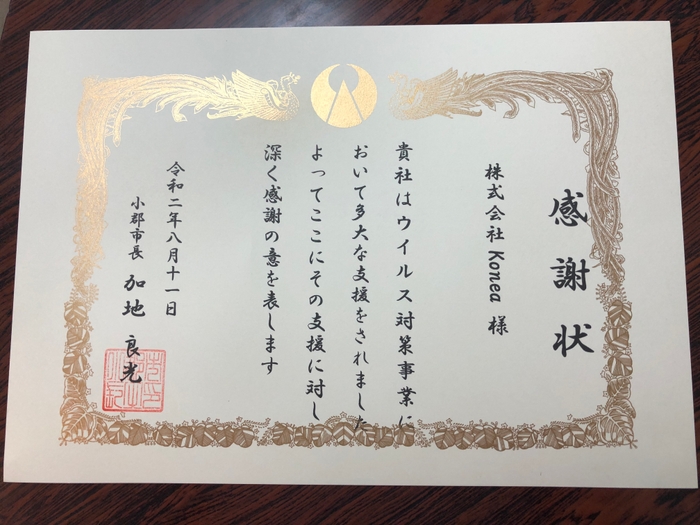 感謝状
株式会社Korea様
貴社はウイルス対策事業に
おいて多大な支援をされました
よってここにその支援に対し
深く感謝の意を表します
令和二年八月十一日
小郡市長 加地 良光